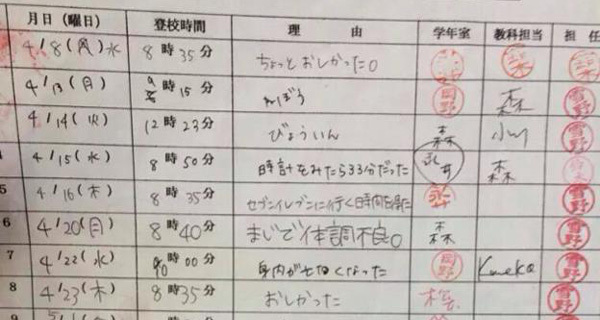 月日(曜日) 登校時間 理由 学年室 教科担当 担任
4/8(月)水 8時35分 ちょっとおしかった。
4/13(月) 9時15分 ねぼう 岡野 森 雪野
4/14(火) 12時23分 びょういん 森 小川 雪野
4 4/15(水) 8時50分 時計をみたら33分だった 森
5 4/16(木) 8時35分 セブンイレブンに行く時間 雪野
6 4/20(月) 8時40分 まじで体調不良。 森 雪野
7 4/22(水) 00分 身内が亡くなった 岡野 雪野
8 4/23(木) 8時35分 おしかった 雪野
9